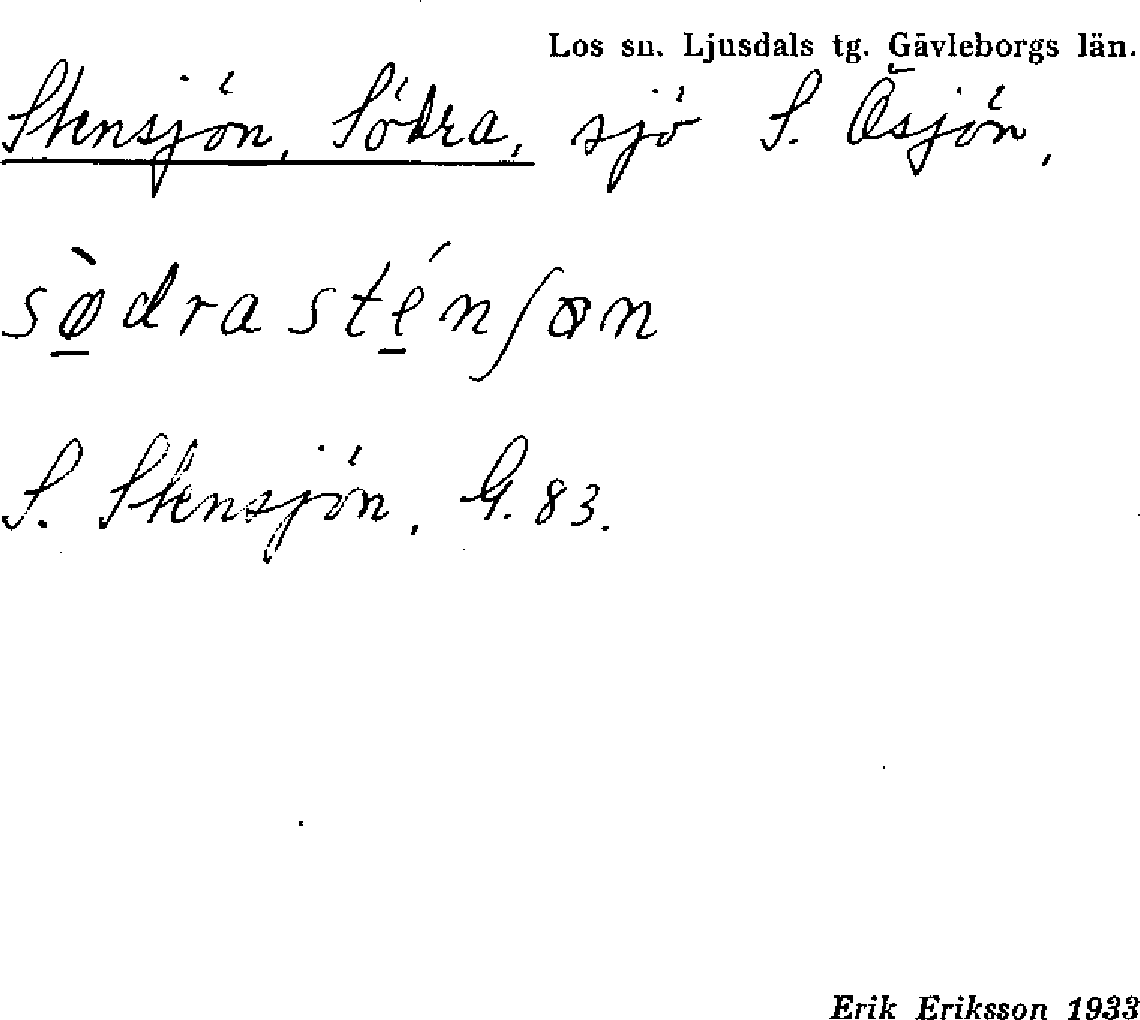 Los sn. Ljusdals tg. Gävleborgs län.
Stensjön, Södra, sjö S. Ösjön,
sø̀drasténʃøn
S. Stensjön, G. 83.
Erik Eriksson 1933